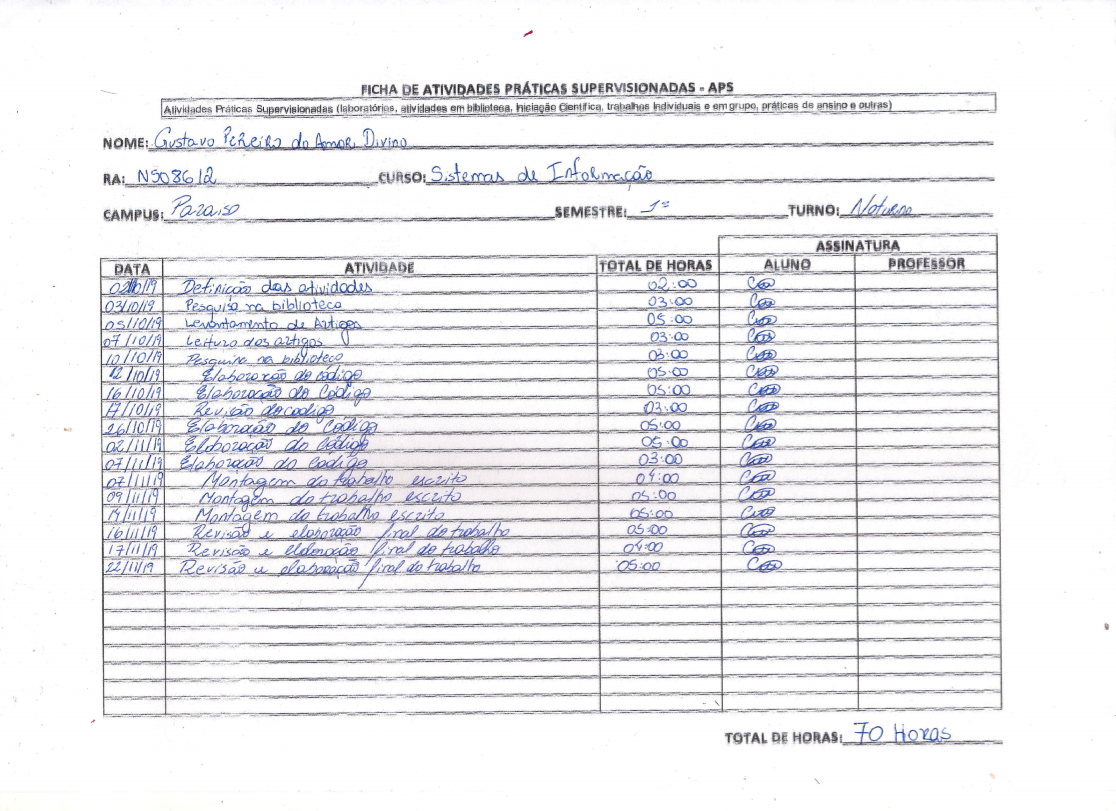 FICHA DE ATIVIDADES PRÁTICAS SUPERVISIONADAS - APS
Atividades Práticas Supervisionadas (laboratórios, atividades em biblioteca, Iniciação Científica, trabalhos Individuais e em grupo, práticas de ensino e outras)
NOME: Gustavo Pereira do Amor Divino
RA: N508612 CURSO: Sistemas de Informação
CAMPUS: Paraiso SEMESTRE: 1º TURNO: Noturno
ASSINATURA
DATA ATIVIDADE TOTAL DE HORAS ALUNO PROFESSOR
02/10/19 Definição das atividades 02:00
03/10/19 Pesquisa na biblioteca 03:00
05/10/19 Levantamento de Artigos 05:00
07/10/19 Leitura dos artigos 03:00
10/10/19 Pesquisa na biblioteca 03:00
12/10/19 Elaboração do código 05:00
16/10/19 Elaboração do Código 05:00
17/10/19 Revisão do codigo 03:00
26/10/19 Elaboração do Código 05:00
02/11/19 Elaboração do Código 05:00
07/11/19 Elaboração do Código 03:00
07/11/19 Montagem do trabalho escrito 04:00
09/11/19 Montagem do trabalho escrito 05:00
14/11/19 Montagem do trabalho escrito 05:00
16/11/19 Revisão e elaboração final do trabalho 05:00
17/11/19 Revisão e elaboração final do trabalho 04:00
22/11/19 Revisão e elaboração final do trabalho 05:00
TOTAL DE HORAS: 70 Horas